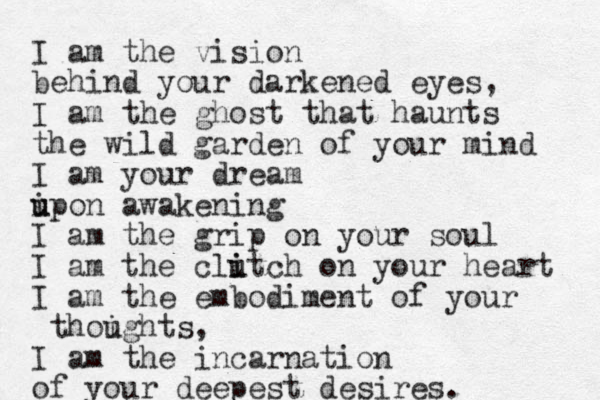 I am the vision
behind your darkened eyes,
I am the ghost that haunts
the wild garden of your mind
I am your dream
upon awakening
I am the grip on your soul
I am the clutch on your heart
I am the embodiment of your
thoughts,
I am the incarnation
of your deepest desires.